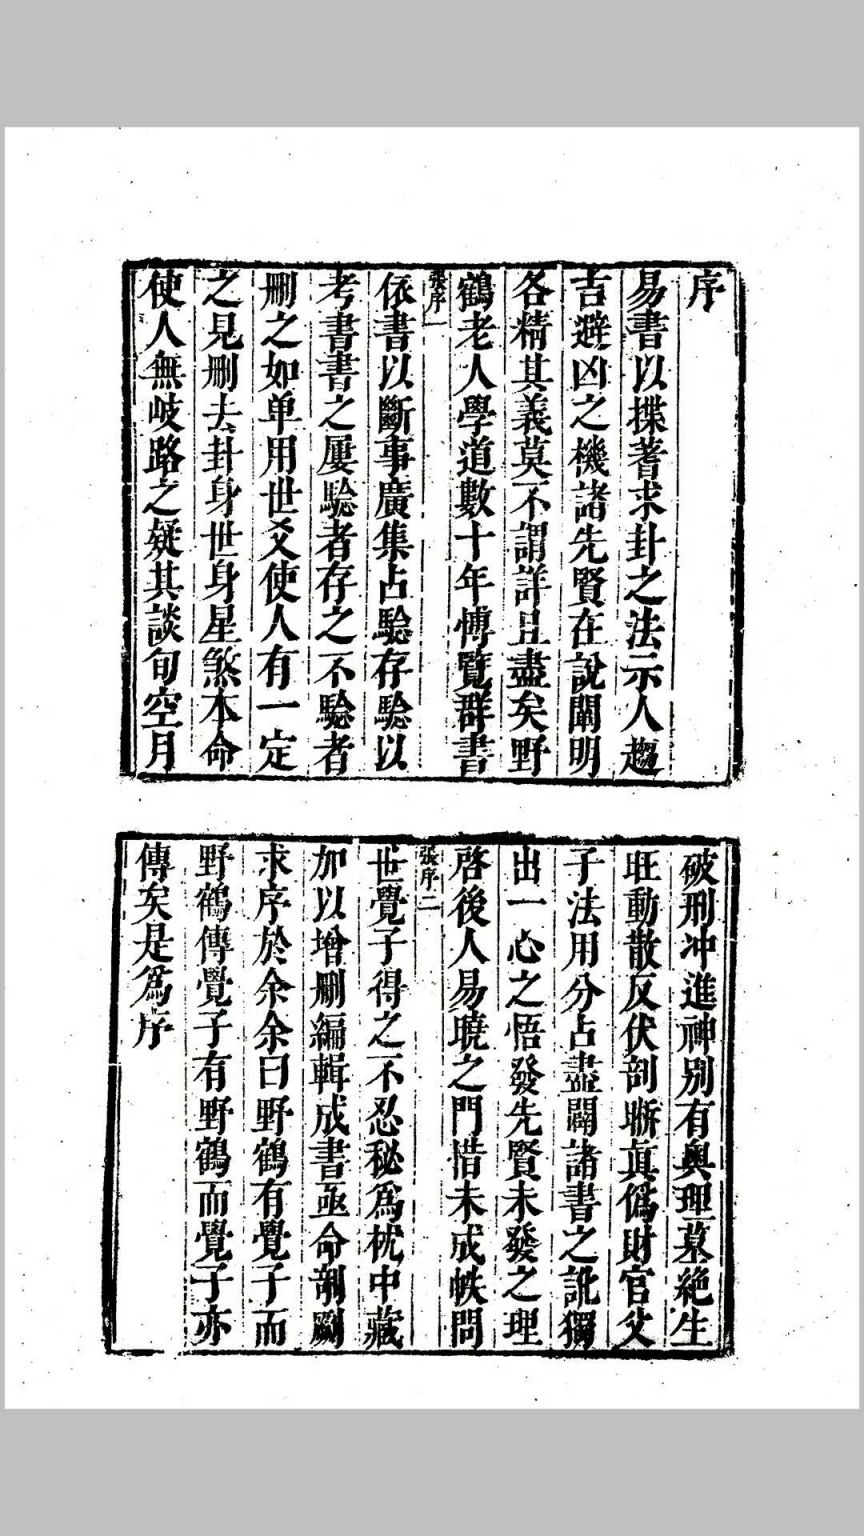 序
易書以揲蓍求卦之法示人趨
吉避凶之機諸先賢在說闡明
各精其義莫不謂詳且盡矣野
鶴老人學道數十年博覽群書
張序一
依書以斷事廣集占驗存驗以
考書書之屢驗者存之不驗者
刪之如单用世爻使人有一定
之見刪去卦身世身星煞本命
使人無岐路之疑其談旬空月
破刑冲進神别有奧理墓絶生
旺動散反伏剖晰眞僞財官父
子法用分占盡闢諸書之訛獨
出一心之悟發先賢未發之理
啓後人易曉之門惜未成帙問
張序二
世覺子得之不忍秘爲枕中藏
加以增刪編輯成書亟命剞劂
求序於余余曰野鶴有覺子而
野鶴傳覺子有野鶴而覺子亦
傳矣是爲序